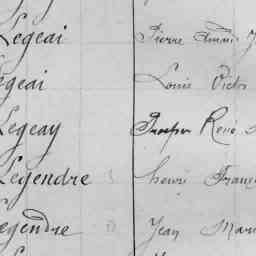 Legeai Pierre Amand J
Legeai Louis Victo
Legeay Prosper René
Legendre henri Franç
Legendre Jean Mari